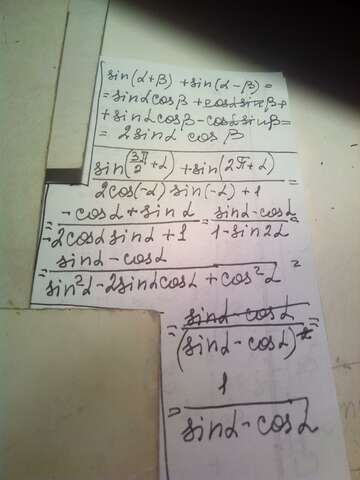 sin(α+β) + sin(α-β) =
= sinα cosβ + cosα sinβ +
+ sinα cosβ - cosα sinβ =
= 2 sinα cosβ
sin(3π/2 + α) + sin(2π + α)
2cos(-α) sin(-α) + 1 =
= -cosα + sinα = sinα - cosα =
-2cosα sinα + 1 1 - sin2α
= sinα - cosα =
sin²α - 2sinα cosα + cos²α
= sinα - cosα =
(sinα - cosα)²
= 1
sinα - cosα